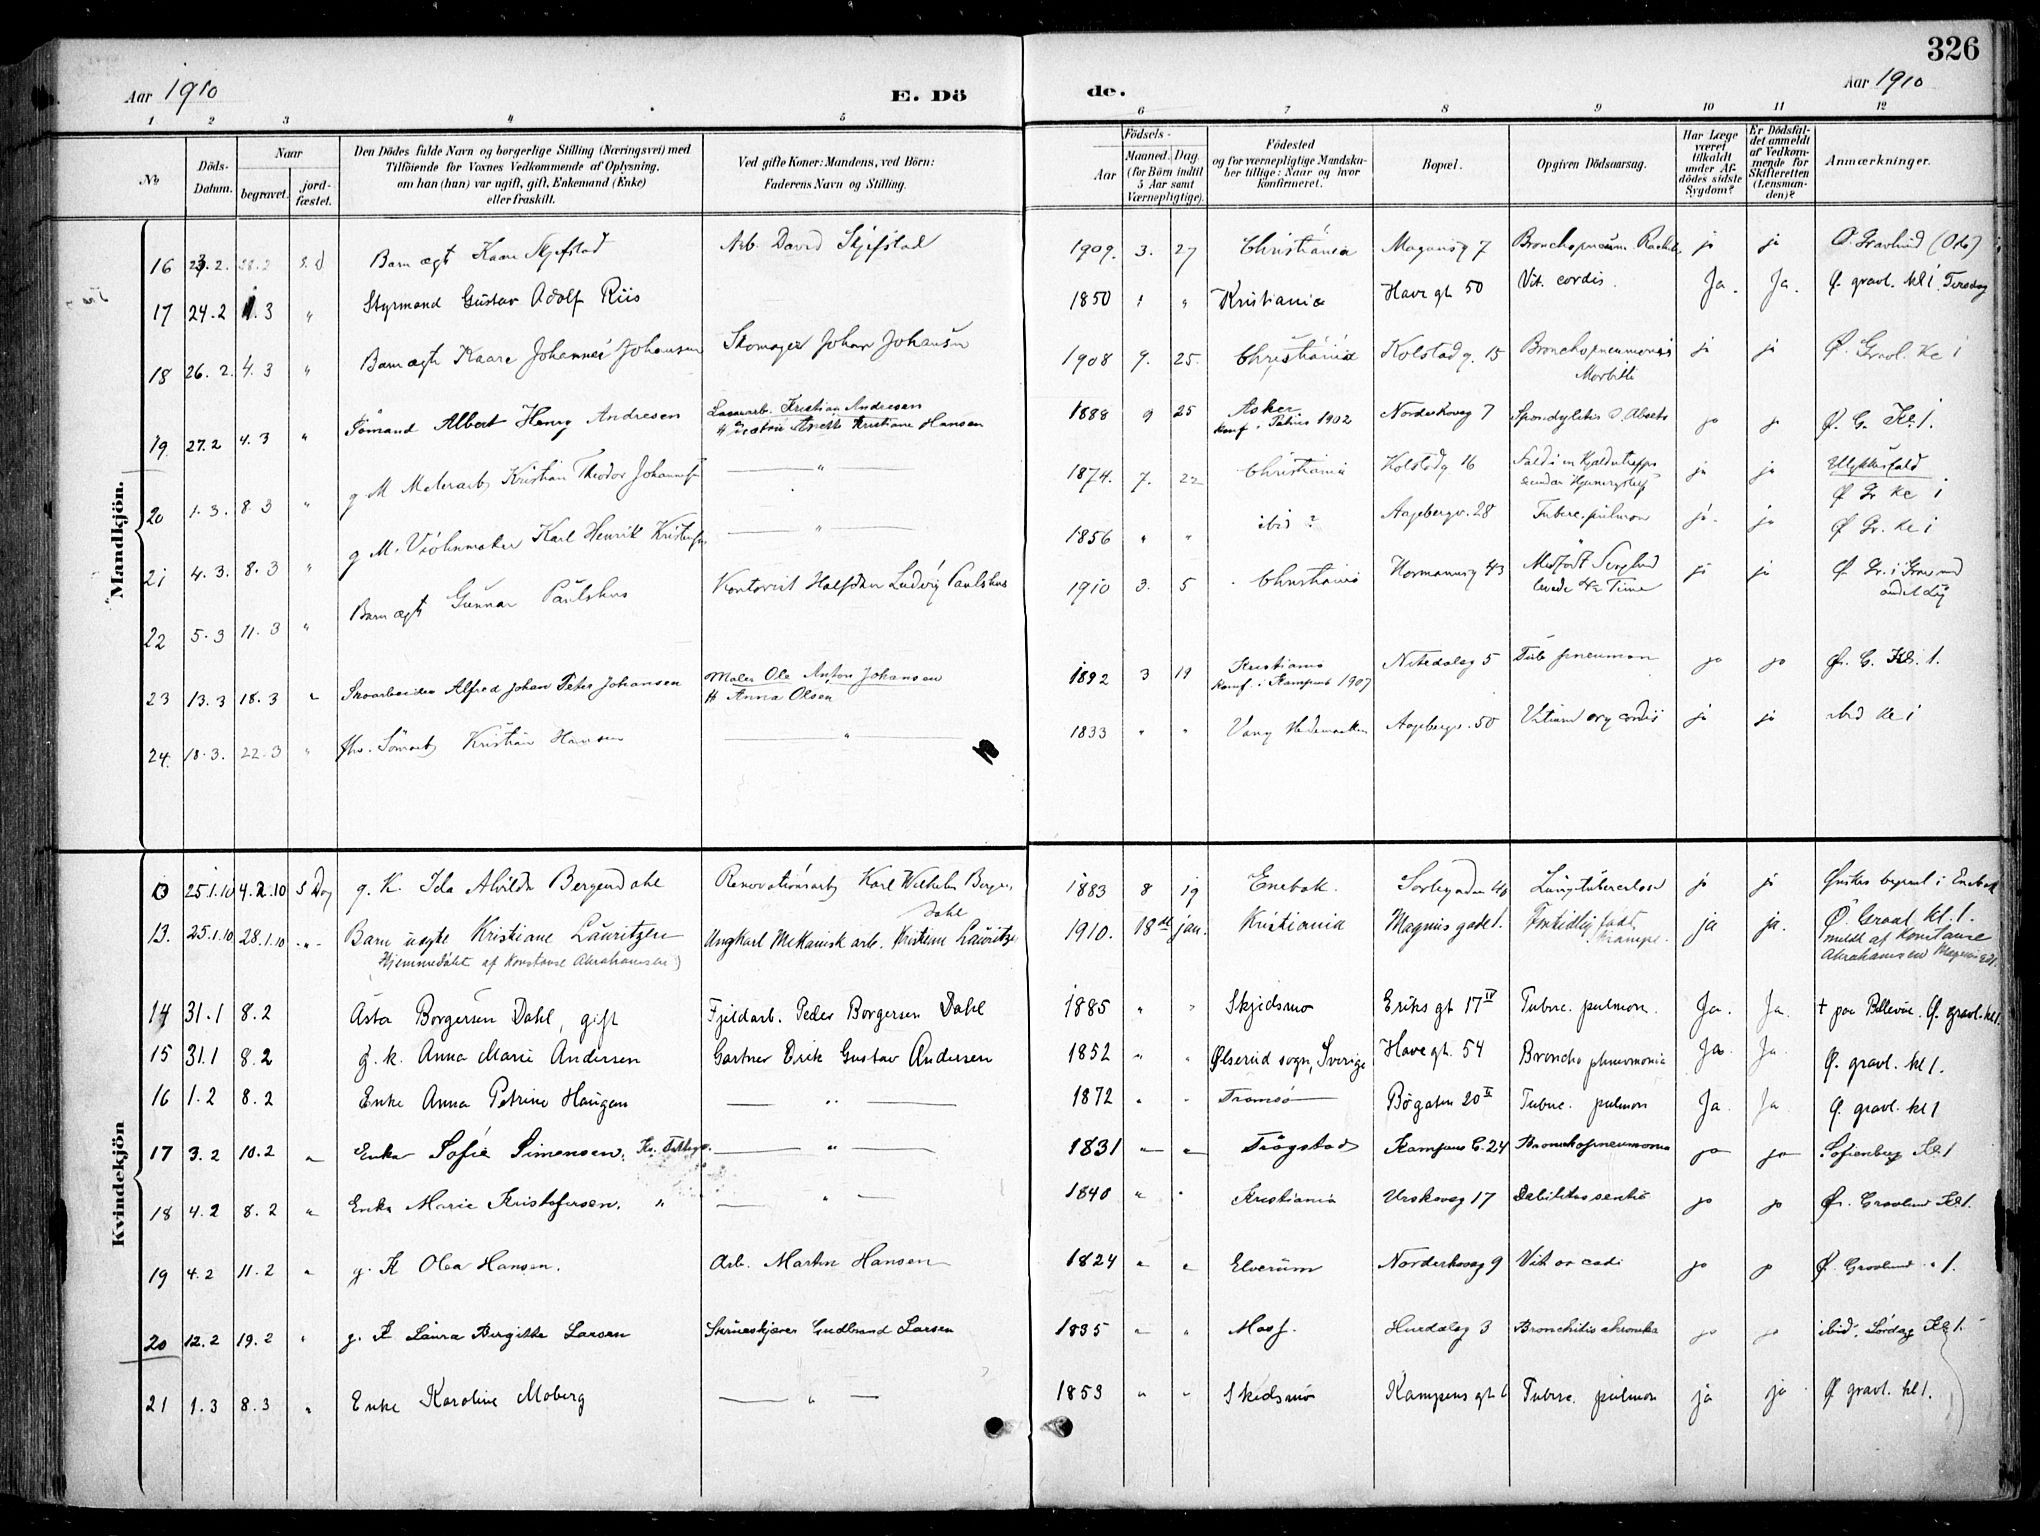 326
Aar 1910
E. Dö de.
Aar 1910
1 2 3 4 5 6 7 8 9 10 11 12
No
Döds-Datum.
Naar
begravet.
jord-fæstet.
Den Dödes fulde Navn og borgerlige Stilling (Næringsvei) med
Tilföiende for Voxnes Vedkommende af Oplysning,
om han (hun) var ugift, gift, Enkemand (Enke)
eller fraskilt.
Ved gifte Koner: Mandens, ved Börn:
Faderens Navn og Stilling.
Födsels-
Aar
Maaned. Dag.
(for Börn indtil
5 Aar samt
Værnepligtige).
Födested
og for værnepligtige Mandsku-
ber tillige: Naar og hvor
konfirmeret.
Bopæl.
Opgiven Dödsaarsag.
Har Læge
været
tilkaldt
under Af-
dödes sidste
Sygdom?
Er Dödsfal-
det anmeldt
af Vedkom-
mende for
Skifteretten
(Lensman-
den)?
Anmærkninger.
Mandkjön.
16 23.2. 28.2 S. d Barn ægt Kaare Skjefstad Arb. David Skjefstad 1909. 3. 27 Christiania Magnusg 7 Bronchopneum. ja ja Ø Gravlund
17 24.2 1.3 " Styrmand Gustav Adolf Riis 1850 " " Kristiania Havegt. 50 Vit. cordis. Ja. Ja. Ø. gravl. kl 1 Tirsdag
18 26.2. 4.3 " Barn ægte Kaare Johannes Johansen Skomager Johan Johansen 1908 9. 25. Christiania Kolstadg. 15 Bronchopneumonis
Morbilli ja ja Ø. Gravl. kl 1
19 27.2 4.3 " Sömand Albert Henry Andresen Kristian Andresen
Kristiane Hansen 1888 9 25 Asker
konf. i Petrus 1902 Norderhovsg 7 Spondylitis ja ja Ø. G. Kl. 1.
20 1.3. 8.3 " g M Malerarb Kristian Theodor " 1874. 7. 22 Christiania Kolstadg 16 Fald i en Kjeldertrappe ja ja Ulykkesfald
Ø Gr kl 1
21 4.3. 8.3 " g M. Karl Henrik " 1856 " " ibid ? Aagebergv. 28 Tuberc. pulmon ja. ja Ø Gr. kl 1
22 5.3 11.3 " Barn ægt Gunnar Paulshus Kontorist Halfdan Ludvig Paulshus 1910 3. 5 Christiania Normannsg 43 Medfödt
levede Time ja ja Ø Gr. i Grav med
andet Lig
23 13.3 18.3 " Skoarbeider Alfred Johan Peter Johansen Maler Ole Anton Johansen
H Anna Olsen 1892 3 19 Kristiania
konf. i Kampens 1907 Nitedalsg 5 Tub pneumon ja ja Ø. G. Kl. 1.
24. 18.3. 22.3 " Kristian Hansen " 1833 " " Vang Hedemarken Aagebergv. 50 Vitium org cordis ja ja ibid kl 1
Kvindekjön
13 25.1.10 4.2.10 S Dag g. K. Ida Alvilda Bergendahl Renovationsarb Karl Wilhelm Bergen
dahl 1883 8 19 Enebak. Lungetuberculose ja ja Ønskes begravet i Enebak
13. 25.1.10 28.1.10 " Barn uægte Kristiane Lauritzen
(Hjemmedöbt af Konstanse Abrahamsen) Ungkarl Mekanisk arb. Kristian Lauritzen 1910. 18de jan. Kristiania Magnus gade 1. Fortidlig födt.
Krampe. ja ja. Ø. Gravl kl. 1.
meldt af Konstanse
Abrahamsen Magnus gt 1.
14 31.1 8.2 Asta Borgersen Dahl, gift Fjeldarb. Peder Borgersen Dahl 1885 " " Skjedsmo Eriks gt 17 IV Tuberc. pulmon. Ja. Ja. † paa Bellevue. Ø. gravl. kl 1.
15 31.1 8.2 g. k. Anna Marie Andersen Gartner Erik Gustav Andersen 1852 " " Ølserud sogn, Sverige Have gt. 54 Broncho pneumonia Ja. Ja. Ø. gravl. kl 1.
16 1.2 8.2 Enke Anna Petrine Haugen " 1872 " " Tromsö Bögaten 20 II Tuberc. pulmon Ja. Ja. Ø. gravl. kl 1
17 3.2 10.2 " Enke Sofie Simensen, " 1831 " " Trögstad Kampens G. 24 Bronchopneumonia ja ja Sofienberg Kl 1
18 4.2 8.2 " Enke Marie Kristofersen, " " 1840 " " Kristiania Urskovsg 17 Debilitas senilis ja ja Ø. Gravlund Kl 1.
19 4.2 11.2 " g. K Olea Hansen. Arb. Martin Hansen 1824 " " Elverum Norderhovsg 9 Vit or cordi ja ja Ø. Gravlund " 1.
20 12.2 19.2 " g. K Laura Birgitte Larsen Gudbrand Larsen 1835 " " Moss. Hurdalsg 3 Bronchitis chronika ja ja ibid, Lördag Kl 1.
21 1.3 8.3 " Enke Karoline Moberg " 1853 " " Skedsmo Kampens gt 6 Tuberc. pulmon ja ja Ø gravl. kl 1.